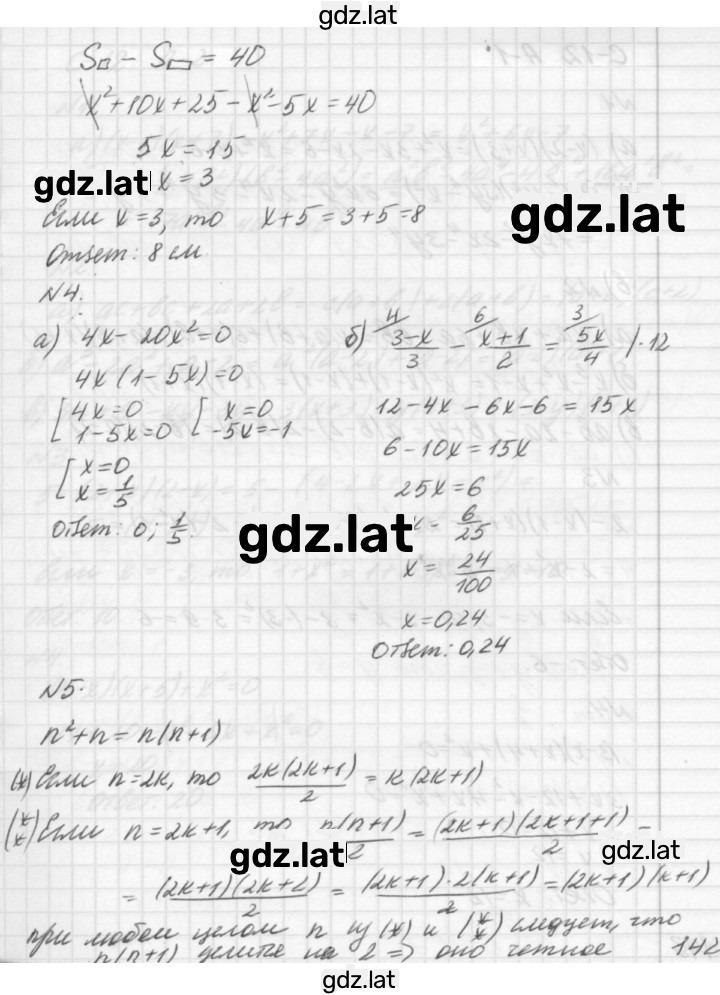 gdz.lat
S□ − S▭ = 40
x²+10x+25−x²−5x=40
5x=15
gdz.lat x=3
Если x=3, то x+5=3+5=8
gdz.lat
Ответ: 8 см
N4.
а) 4x−20x²=0
4x(1−5x)=0
[4x=0 [x=0
1−5x=0 −5x=−1
[x=0
x=1/5
Ответ: 0; 1/5.
б) ⁴/ (3−x)/3 − ⁶/ (x+1)/2 = ³/ 5x/4 /·12
12−4x−6x−6=15x
6−10x=15x
25x=6
gdz.lat x= 6/25
x= 24/100
x=0,24
Ответ: 0,24
N5.
n²+n=n(n+1)
(*) Если n=2k, то 2k(2k+1)/2 = k(2k+1)
(**) Если n=2k+1, то n(n+1)/2 = (2k+1)(2k+1+1)/2 =
gdz.lat
gdz.lat
= (2k+1)(2k+2)/2 = (2k+1)·2(k+1)/2 = (2k+1)(k+1)
при любом целом n из (*) и (**) следует, что
n(n+1) делится на 2 => оно четное 142
gdz.lat